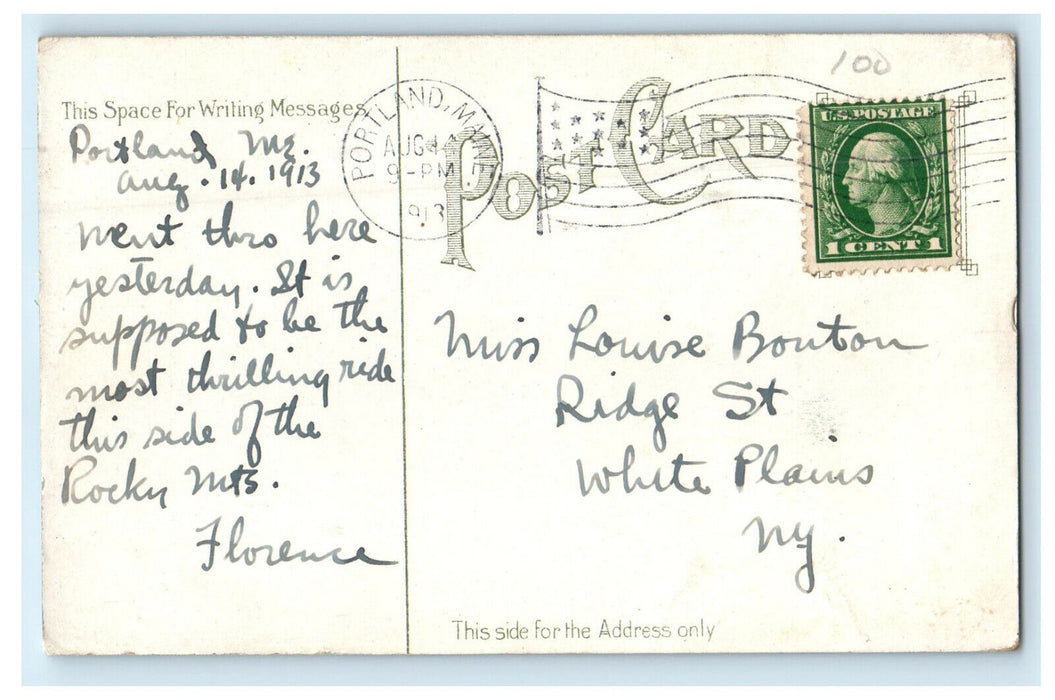 100
This Space For Writing Messages
Portland Me.
Aug. 14. 1913
Went thro here
yesterday. It is
supposed to be the
most thrilling ride
this side of the
Rocky Mts.
Florence
PORTLAND, MAINE
AUG 14
9-PM
1913
POST CARD
U.S. POSTAGE
1 CENT 1
Miss Louise Bouton
Ridge St
White Plains
Ny.
This side for the Address only